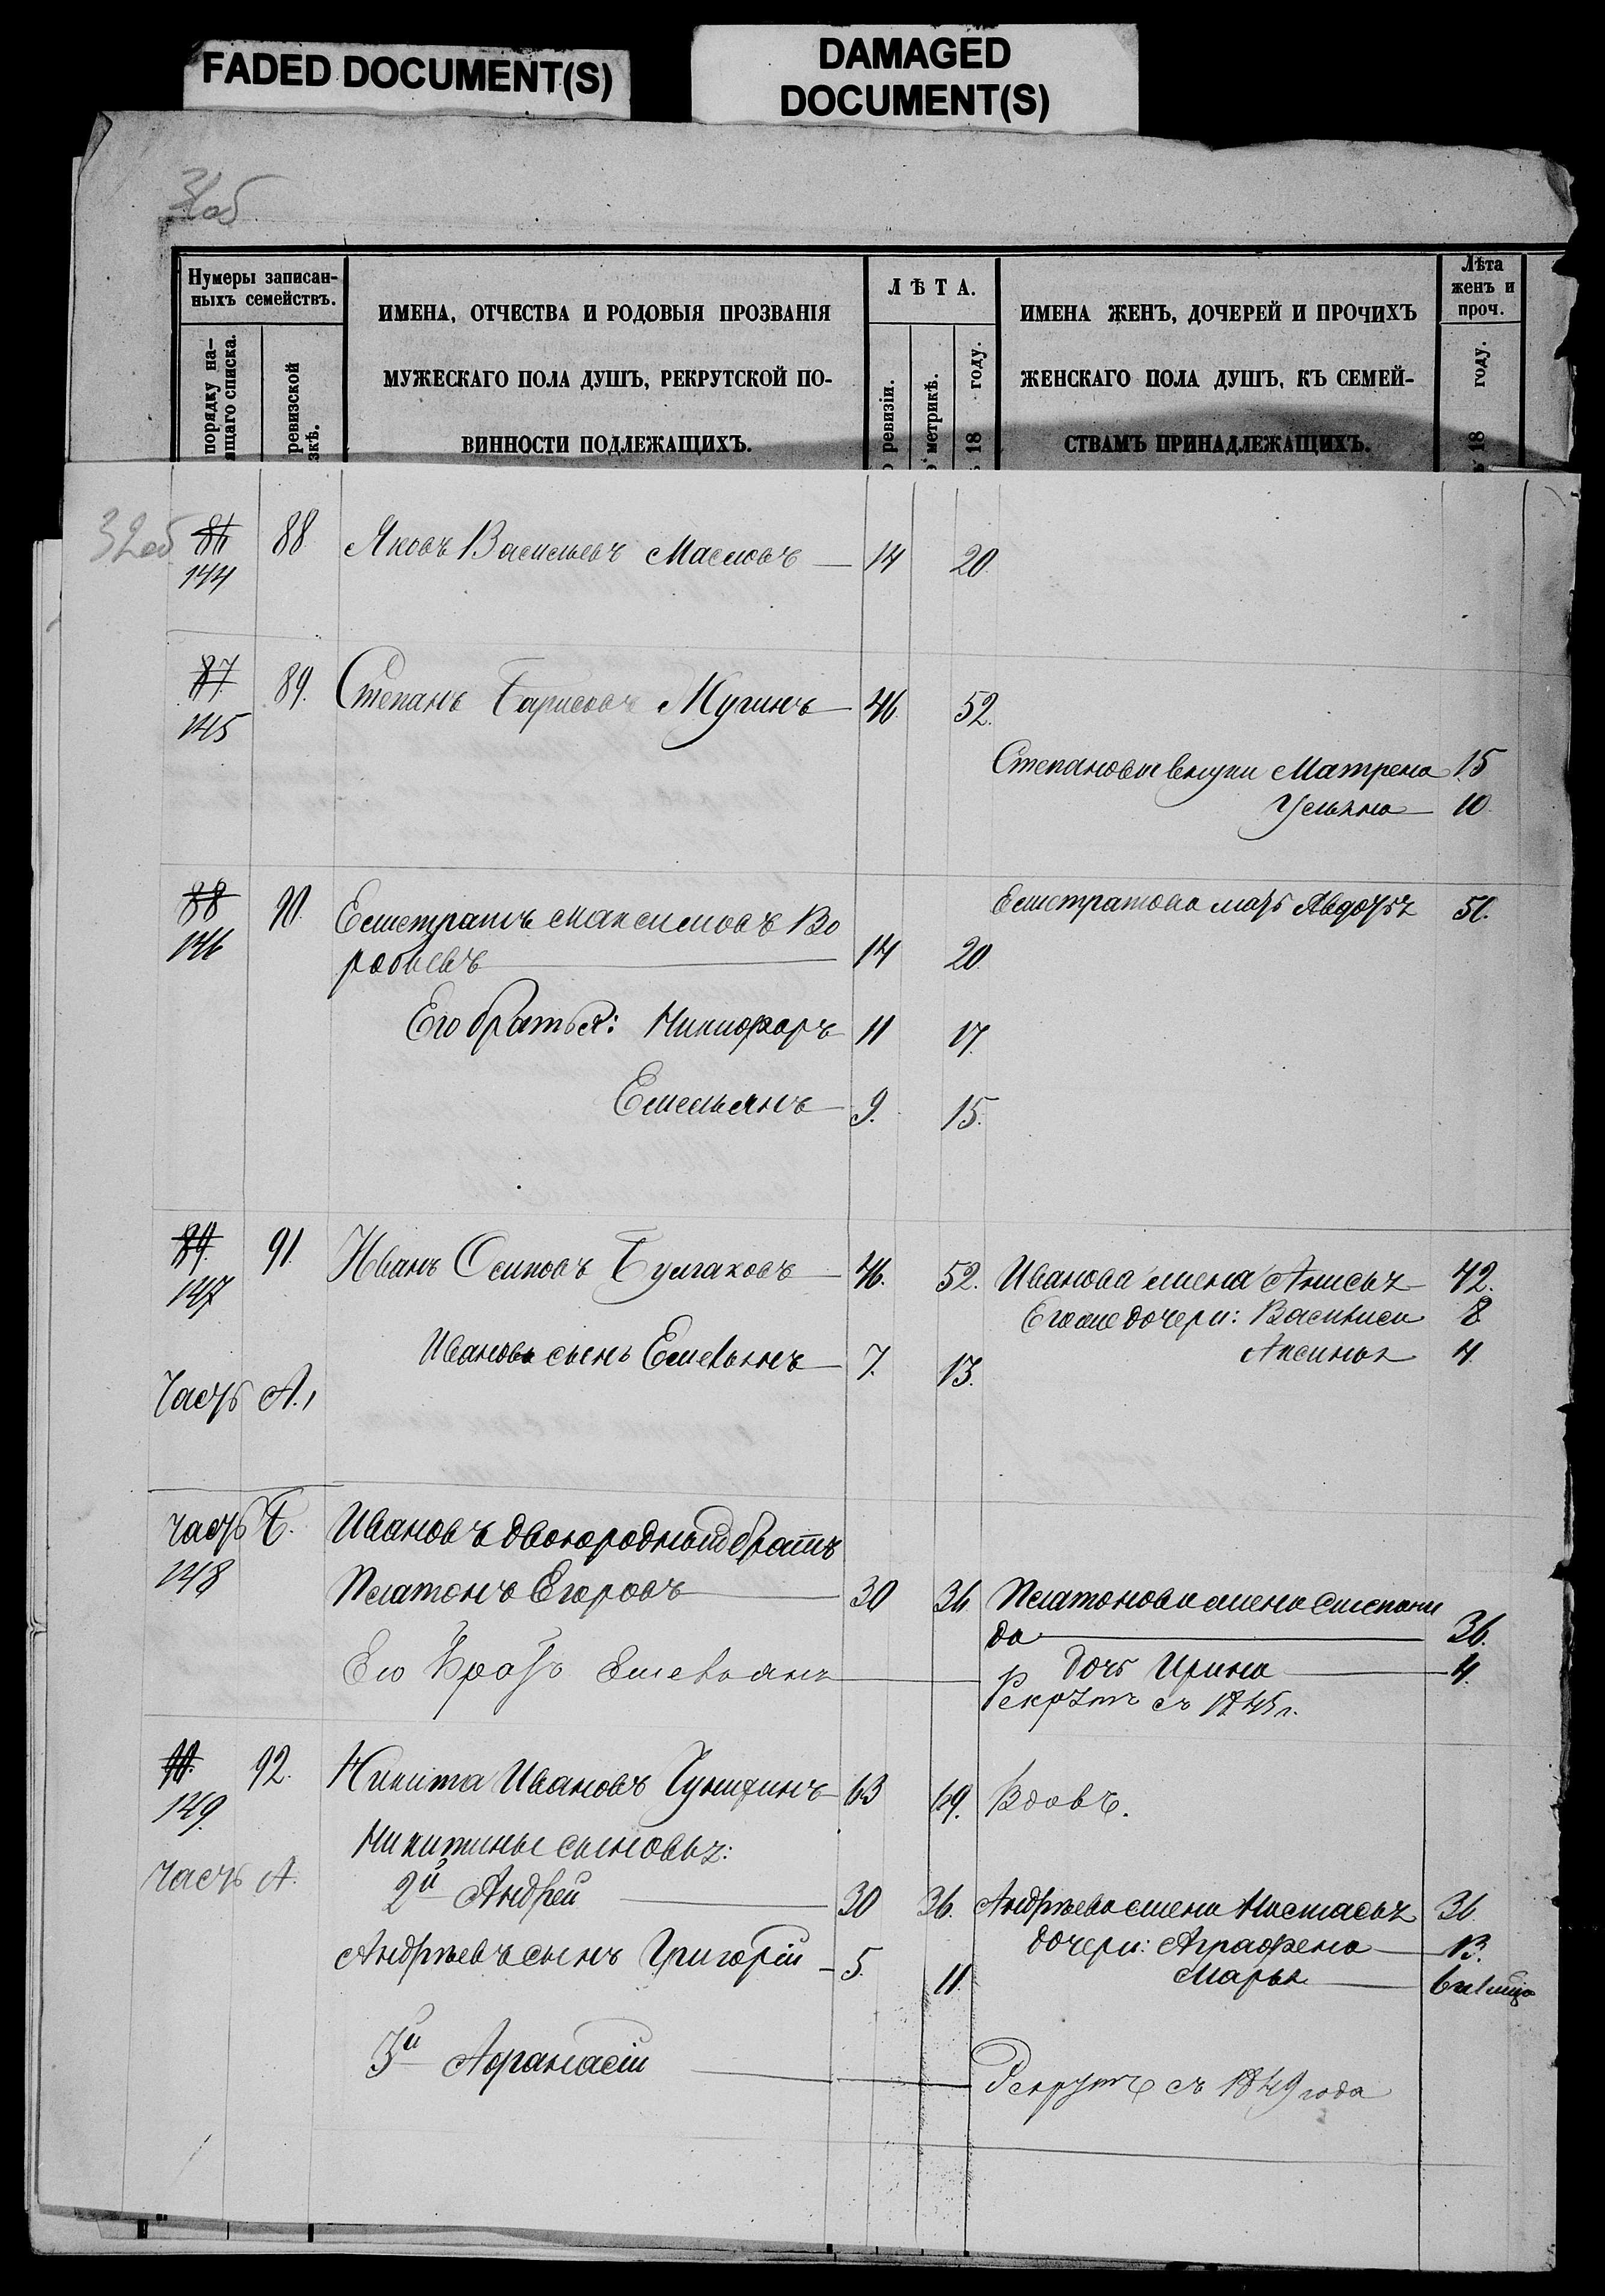 FADED DOCUMENT(S)
DAMAGED
DOCUMENT(S)
31об
Нумеры записан-
ныхъ семействъ.
порядку на-
щаго списка.
ревизской
зкѣ.
ИМЕНА, ОТЧЕСТВА И РОДОВЫЯ ПРОЗВАНІЯ
МУЖЕСКАГО ПОЛА ДУШЪ, РЕКРУТСКОЙ ПО-
ВИННОСТИ ПОДЛЕЖАЩИХЪ.
ЛѢТА.
о ревизіи.
о метрикѣ.
ъ 18 году.
ИМЕНА ЖЕНЪ, ДОЧЕРЕЙ И ПРОЧИХЪ
ЖЕНСКАГО ПОЛА ДУШЪ, КЪ СЕМЕЙ-
СТВАМЪ ПРИНАДЛЕЖАЩИХЪ.
Лѣта
женъ и
проч.
ъ 18 году.
32об 86 88 Яковъ Васильевъ Масловъ 14 20.
144
87. 89. Степанъ Барисовъ Мугинъ 46. 52.
145
Степановы внуки Матрена 15
Ульяна 10.
88 90. Евстратова мать Авдотья 51.
146 Евстратъ Максимовъ Во
робьевъ 14 20.
Его братья: Никифоръ 11 17.
Емельянъ 9. 15.
89. 91. Иванъ Осиповъ Булгаковъ 46. 52. Иванова жена Анисья 42.
147 Его же дочери: Василиса 8
Ивановъ сынъ Емельянъ 7. 13. Аксинья 4.
Часть А.
часть Б. Ивановъ двоюродный братъ
148 Платонъ Егоровъ 30 36 Платонова жена Степани
да 36.
Его Братъ Емельянъ дочь Ирина 4.
Рекрутъ съ 1845 г.
90. 92. Никита Ивановъ Чунихинъ 63 69. Вдовъ.
149.
Никитины сыновья:
часть А. 2й Андрей 30 36. Андреева жена Настасья 36
дочери: Аграфена 13.
Андреевъ сынъ Григорій 5. 11. Марья
3й Афанасій Рекрутъ съ 1849 года